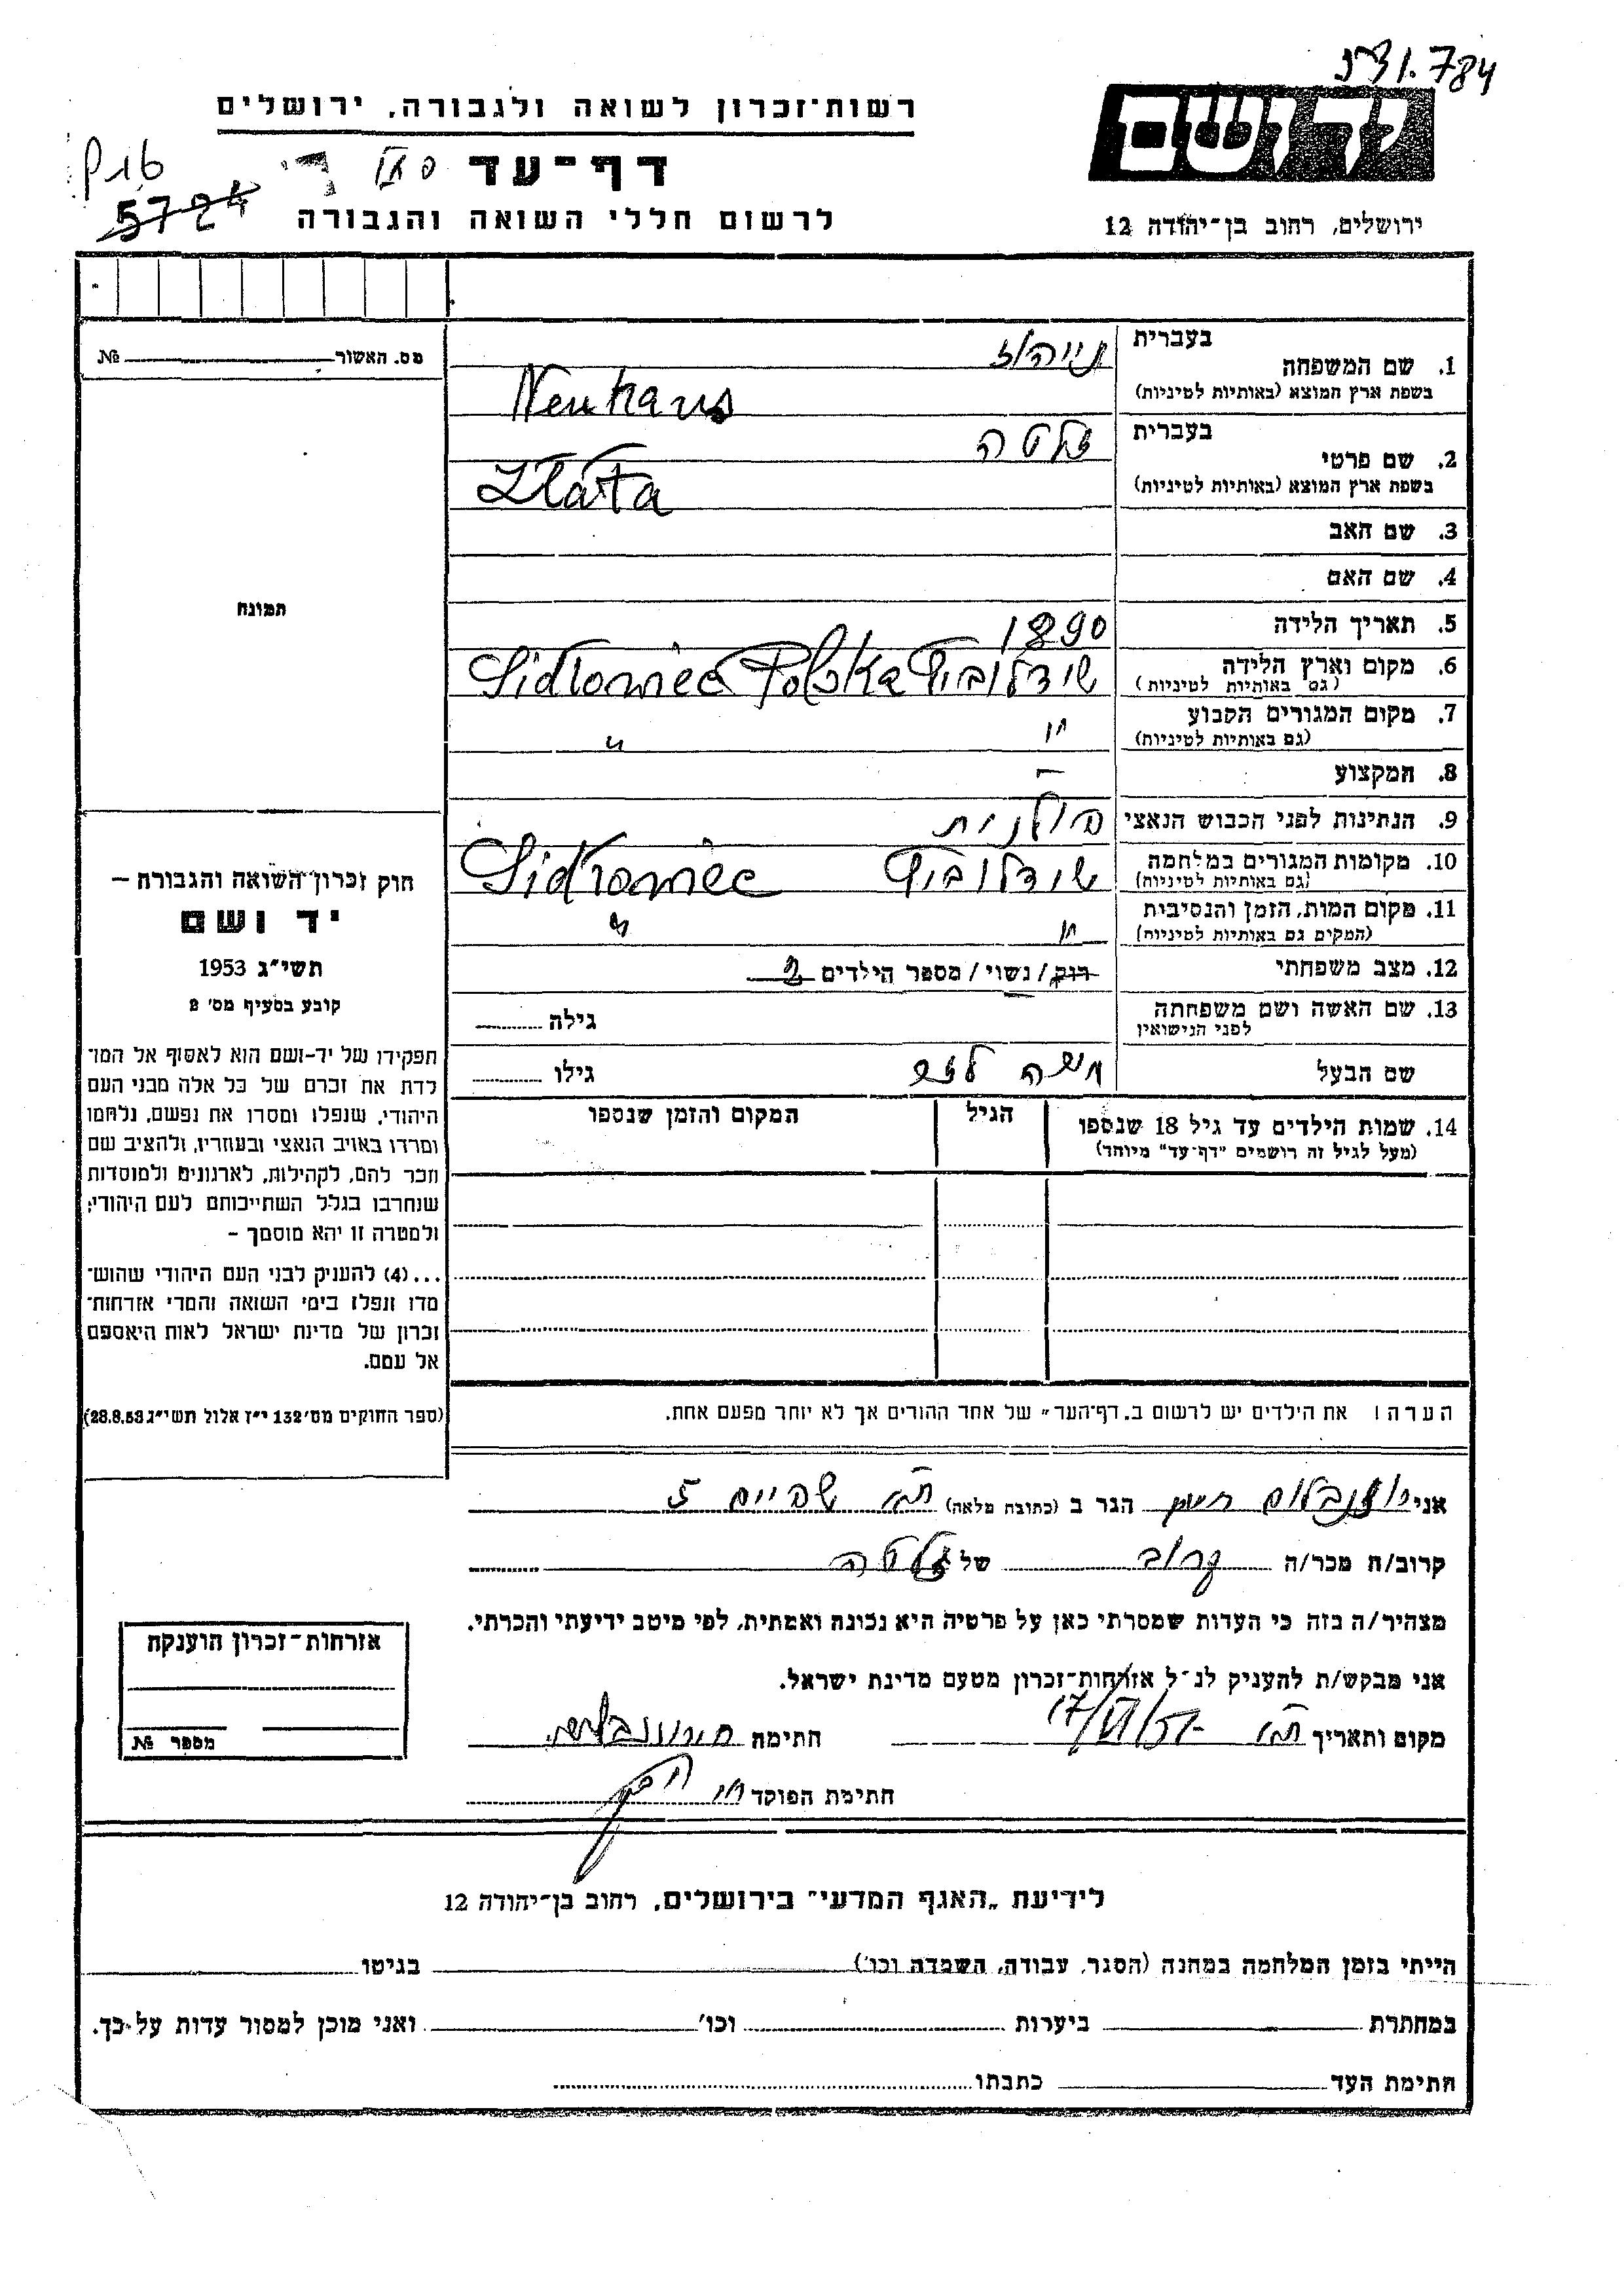 531.784
רשות־זכרון לשואה ולגבורה, ירושלים
ידושם
דף־עד
5724
לרשום חללי השואה והגבורה
ירושלים, רחוב בן־יהודה 12
מס. האשור № 
1. שם המשפחה
בעברית
נייהוז
בשפת ארץ המוצא (באותיות לטיניות)
Neuhaus
2. שם פרטי
בעברית
זלטה
בשפת ארץ המוצא (באותיות לטיניות)
Zlata
3. שם האב
4. שם האם
תמונה
5. תאריך הלידה 1890
6. מקום וארץ הלידה
(גם באותיות לטיניות)
שידלוביץ Sidłowiec Polska
7. מקום המגורים הקבוע
(גם באותיות לטיניות)
" "
8. המקצוע —
9. הנתינות לפני הכבוש הנאצי פולנית
10. מקומות המגורים במלחמה
(גם באותיות לטיניות)
שידלוביץ Sidłowiec
11. מקום המות, הזמן והנסיבות
(המקום גם באותיות לטיניות)
" "
12. מצב משפחתי רוק/ נשוי/ מספר הילדים
13. שם האשה ושם משפחתה
לפני הנישואין
גילה
שם הבעל משה לזר גילו
14. שמות הילדים עד גיל 18 שנספו
(מעל לגיל זה רושמים "דף־עד" מיוחד)
הגיל
המקום והזמן שנספו
חוק זכרון השואה והגבורה —
יד ושם
תשי"ג 1953
קובע בסעיף מס' 2
תפקידו של יד-ושם הוא לאסוף אל המו־
לדת את זכרם של כל אלה מבני העם
היהודי, שנפלו ומסרו את נפשם, נלחמו
ומרדו באויב הנאצי ובעוזריו, ולהציב שם
וזכר להם, לקהילות, לארגונים ולמוסדות
שנחרבו בגלל השתייכותם לעם היהודי;
ולמטרה זו יהא מוסמך –
...(4) להעניק לבני העם היהודי שהוש־
מדו ונפלו בימי השואה והמרי אזרחות־
זכרון של מדינת ישראל לאות היאספם
אל עמם.
(ספר החוקים מס' 132 י"ז אלול תשי"ג 28.8.53)
הערה: את הילדים יש לרשום ב„דף־העד" של אחד ההורים אך לא יותר מפעם אחת.
אני הגר ב (כתובת מלאה) 5
קרוב/ה מכר/ה קרוב של זלטה
מצהיר/ה בזה כי העדות שמסרתי כאן על פרטיה היא נכונה ואמתית, לפי מיטב ידיעתי והכרתי.
אני מבקש/ת להעניק לנ"ל אזרחות־זכרון מטעם מדינת ישראל.
מקום ותאריך חתימה
חתימת הפוקד
אזרחות־זכרון הוענקה
מספר №
לידיעת „האגף המדעי" בירושלים, רחוב בן־יהודה 12
הייתי בזמן המלחמה במחנה (הסגר, עבודה, השמדה וכו') בגיטו
במחתרת ביערות וכו' ואני מוכן למסור עדות על־כך.
חתימת העד כתבתו